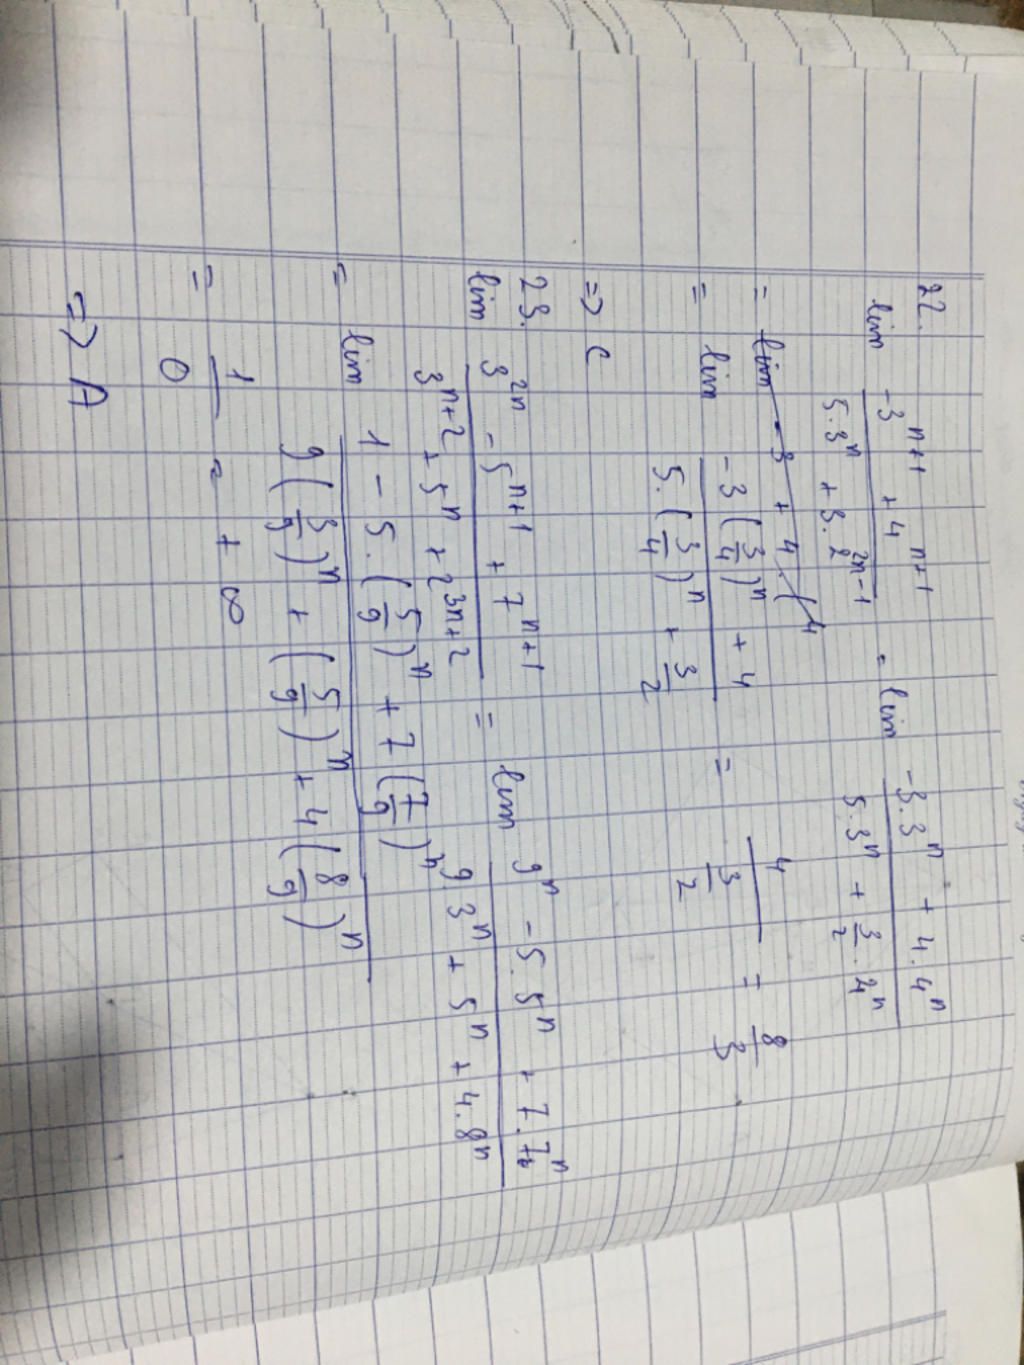 22.
lim (-3^{n+1} + 4^{n+1})/(5.3^n + 3.2^{2n-1}) = lim (-3.3^n + 4.4^n)/(5.3^n + 3/2 . 4^n)
= lim (-3(3/4)^n + 4)/(5.(3/4)^n + 3/2) = 4/(3/2) = 8/3
=> C
23.
lim (3^{2n} - 5^{n+1} + 7^{n+1})/(3^{n+2} + 5^n + 2^{3n+2}) = lim (9^n - 5.5^n + 7.7^n)/(9.3^n + 5^n + 4.8^n)
= lim (1 - 5.(5/9)^n + 7(7/9)^n)/(9(3/9)^n + (5/9)^n + 4(8/9)^n)
= 1/0 = +∞
=> A